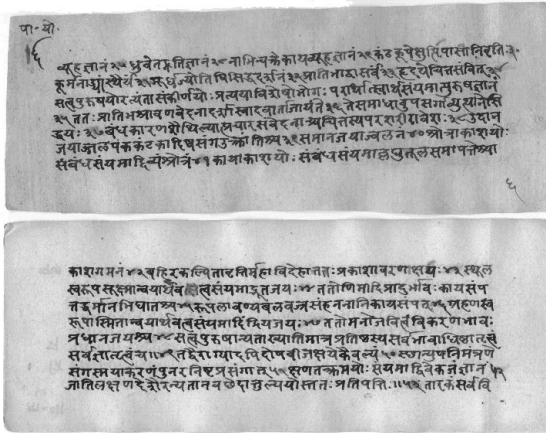 पा॰यो॰
६
व्यूहज्ञानं २७ ध्रुवे तद्गतिज्ञानं २८ नाभिचक्रे कायव्यूहज्ञानं २९ कंठकूपे क्षुत्पिपासानिवृत्तिः ३०
कूर्मनाड्यां स्थैर्यं ३१ मूर्धज्योतिषि सिद्धदर्शनं ३२ प्रातिभाद्वा सर्वं ३३ हृदये चित्तसंवित् ३४
सत्वपुरुषयोरत्यंतासंकीर्णयोः प्रत्ययाविशेषो भोगः परार्थात्स्वार्थसंयमात्पुरुषज्ञानं
३५ ततः प्रातिभश्रावणवेदनादर्शास्वादवार्ता जायंते ३६ ते समाधावुपसर्गा व्युत्थाने सि
द्धयः ३७ बंधकारणशैथिल्यात्प्रचारसंवेदनाच्च चित्तस्य परशरीरावेशः ३८ उदान
जयाज्जलपंककंटकादिष्वसंग उत्क्रांतिश्च ३९ समानजयाज्ज्वलनं ४० श्रोत्राकाशयोः
संबंधसंयमाद्दिव्यं श्रोत्रं ४१ कायाकाशयोः संबंधसंयमाल्लघुतूलसमापत्तेश्चा
६
काशगमनं ४२ बहिरकल्पिता वृत्तिर्महाविदेहा ततः प्रकाशावरणक्षयः ४३ स्थूल
स्वरूपसूक्ष्मान्वयार्थवत्वसंयमाद्भूतजयः ४४ ततोणिमादिप्रादुर्भावः कायसंप
त्तद्धर्मानभिघातश्च ४५ रूपलावण्यबलवज्रसंहननानि कायसंपत् ४६ ग्रहणस्व
रूपास्मितान्वयार्थवत्वसंयमादिंद्रियजयः ४७ ततो मनोजवित्वं विकरणभावः
प्रधानजयश्च ४८ सत्वपुरुषान्यताख्यातिमात्रप्रतिष्ठस्य सर्वभावाधिष्ठातृत्वं
सर्वज्ञातृत्वं च ४९ तद्वैराग्यादपि दोषबीजक्षये कैवल्यं ५० स्थान्युपनिमंत्रणे
संगस्मयाकरणं पुनरनिष्टप्रसंगात् ५१ क्षणतत्क्रमयोः संयमाद्विवेकजं ज्ञानं ५२
जातिलक्षणदेशैरन्यतानवच्छेदात्तुल्ययोस्ततः प्रतिपत्तिः ॥ ५३ तारकं सर्ववि